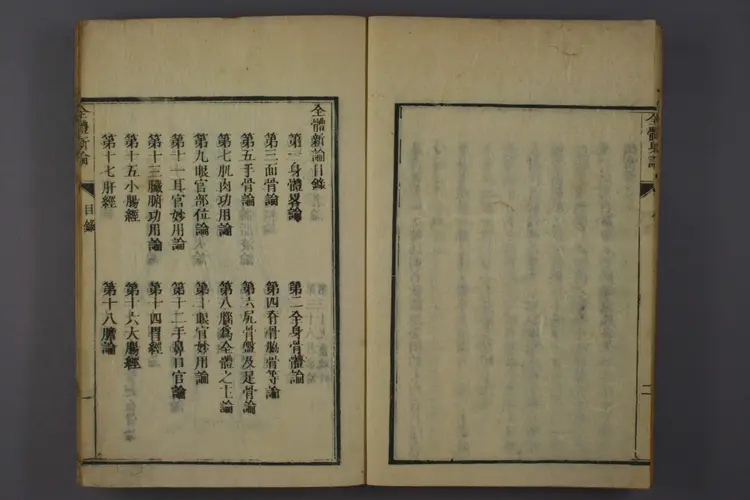 全體新論
二
全體新論目錄
第一身體畧論　第二全身骨體論
第三面骨論　第四脊骨脇骨等論
第五手骨論　第六尻骨盤及足骨論
第七肌肉功用論　第八腦爲全體之主論
第九眼官部位論　第十眼官妙用論
第十一耳官妙用論　第十二手鼻口官論
第十三臟腑功用論　第十四胃經
第十五小腸經　第十六大腸經
第十七肝經　第十八膽論
全體新論
目錄
一